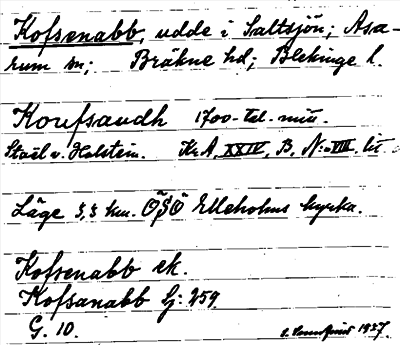 Kofsenabb, udde i Saltsjön; Asa-
rum sn; Bräkne hd; Blekinge l.
Koufsaudh 1700-tal. mitt.
Staël v. Holstein. Kr. A. XXIV, B. N:o VIII. lit
Läge 5,5 km. ÖSÖ Elleholms kyrka.
Kofsenabb ek.
Kofsanabb Gj: 259
G. 10. 1937.